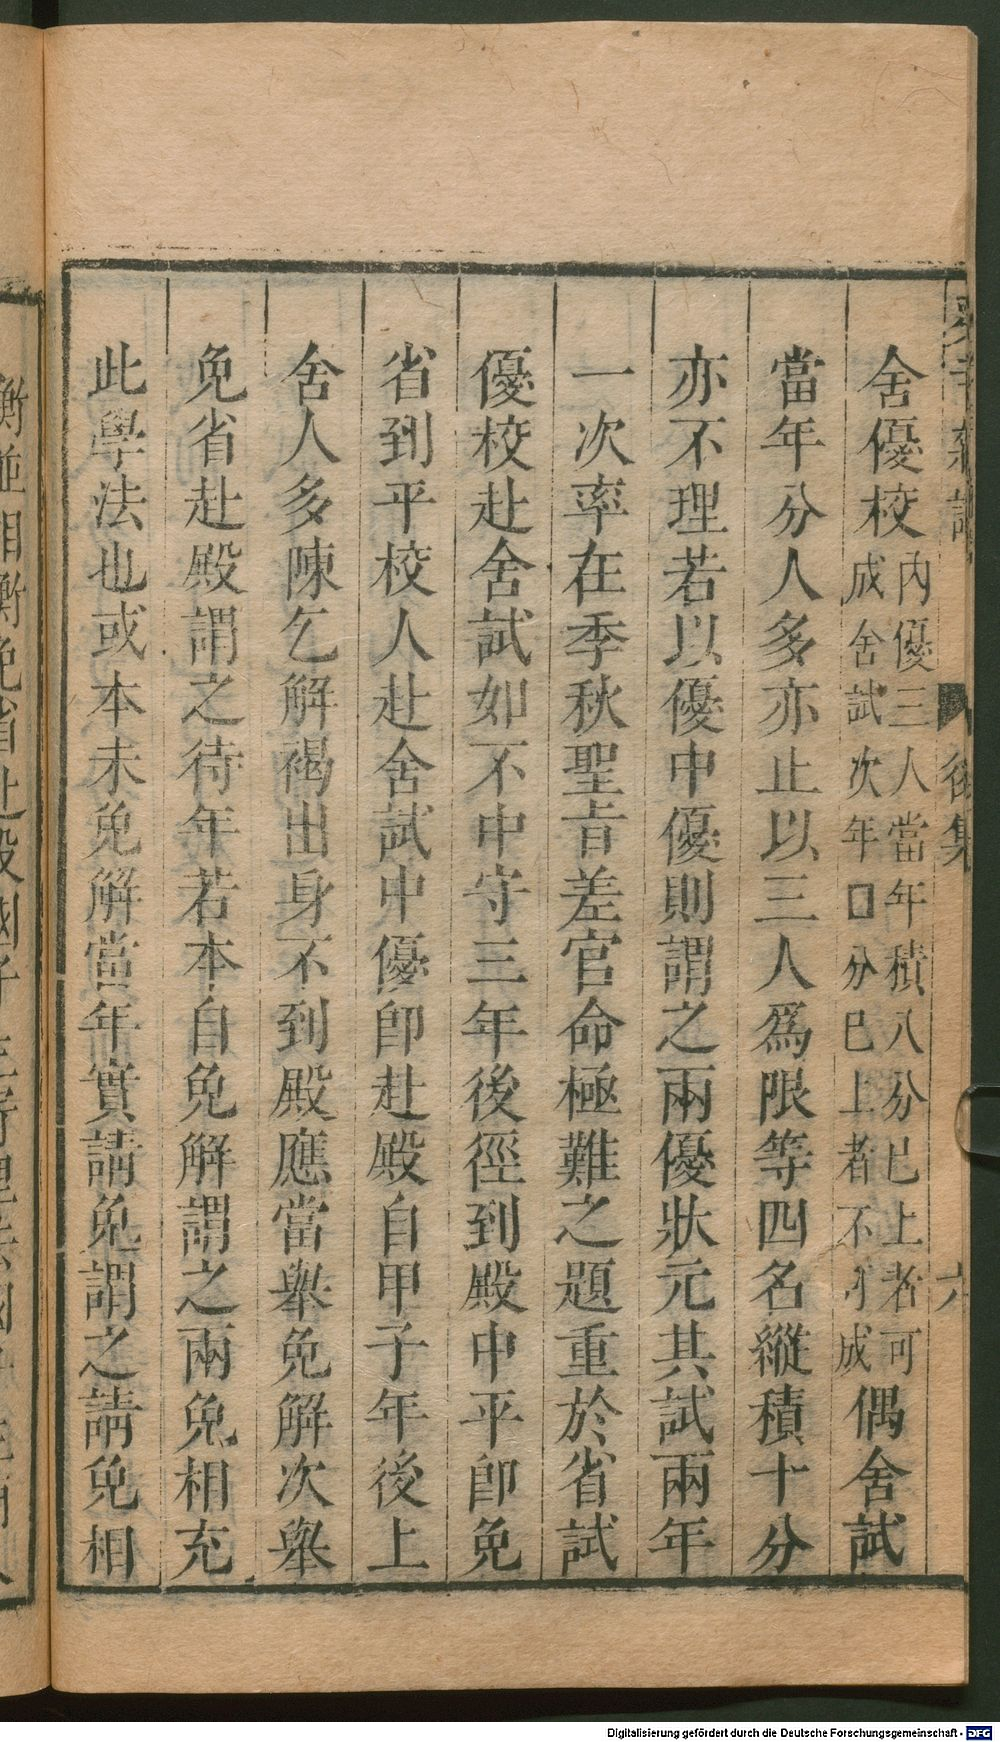 舍優校內優三人當年積八分已上者可成舍試次年囗分已上者不可成偶舍試
當年分人多亦止以三人爲限等四名縱積十分
亦不理若以優中優則謂之兩優狀元其試兩年
一次率在季秋聖旨差官命極難之題重於省試
優校赴舍試如不中守三年後徑到殿中平卽免
省到平校人赴舍試中優卽赴殿自甲子年後上
舍人多陳乞解褐出身不到殿應當舉免解次舉
免省赴殿謂之待年若本自免解謂之兩免相充
此學法也或本未免解當年實請免謂之請免相
雜識
後集
六
衡並相衡免省赴殿國子
Digitalisierung gefördert durch die Deutsche Forschungsgemeinschaft - DFG